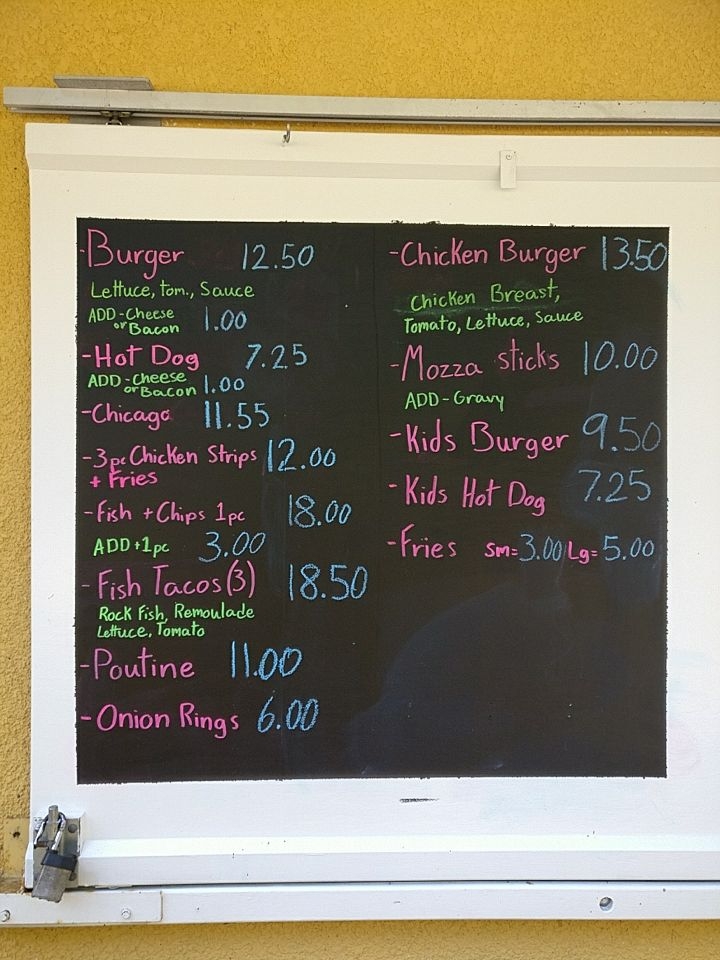 -Burger 12.50
Lettuce, tom., Sauce
ADD-Cheese
or Bacon 1.00
-Hot Dog 7.25
ADD-Cheese
or Bacon 1.00
-Chicago 11.55
-3pc Chicken Strips 12.00
+ Fries
-Fish + Chips 1pc 18.00
ADD +1pc 3.00
-Fish Tacos (3) 18.50
Rock Fish, Remoulade
Lettuce, Tomato
-Poutine 11.00
-Onion Rings 6.00
-Chicken Burger 13.50
Chicken Breast,
Tomato, Lettuce, Sauce
-Mozza sticks 10.00
ADD-Gravy
-Kids Burger 9.50
-Kids Hot Dog 7.25
-Fries Sm=3.00 Lg=5.00